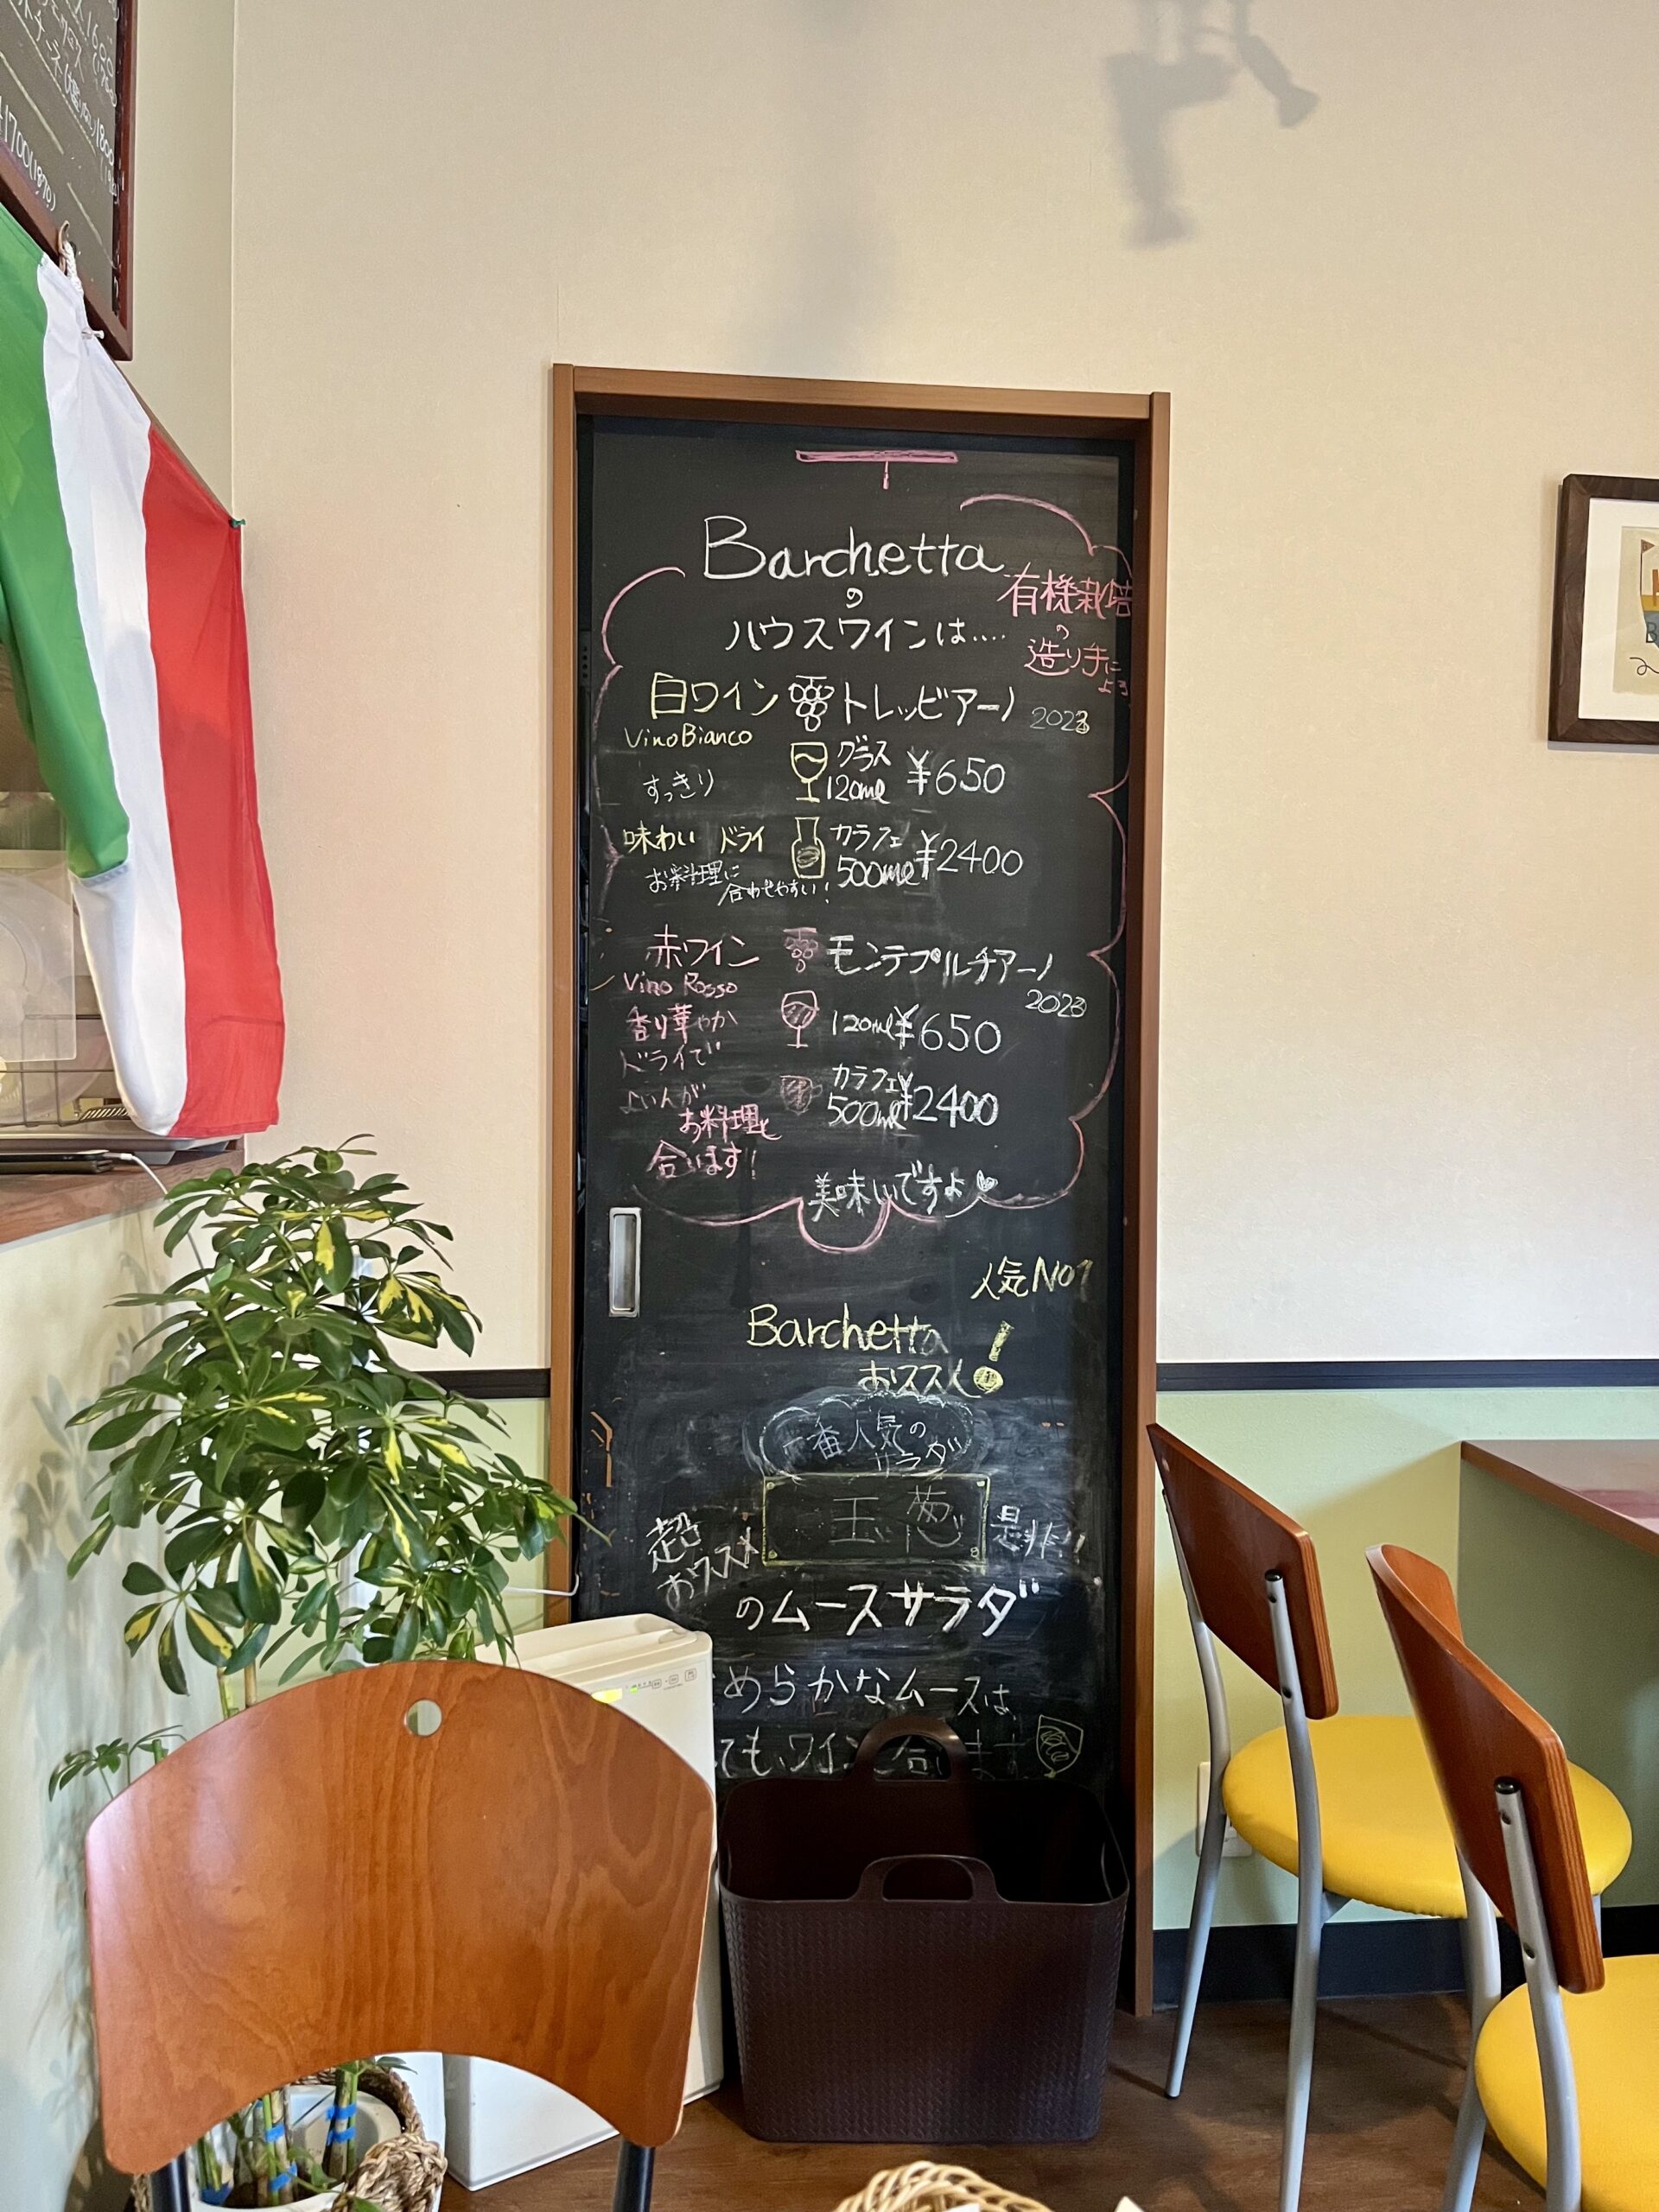 1600
1800
1700(1870)
Barchetta
の
ハウスワインは‥‥
有機栽培
の
造り手に
よる
白ワイン トレッビアーノ 2023
Vino Bianco
グラス
120ml ¥650
すっきり
味わい ドライ
カラフェ
500ml ¥2400
お料理に
合わせやすい!
赤ワイン モンテプルチアーノ
Vino Rosso 2023
香り華やか
120ml ¥650
ドライで
よいんが
カラフェ
500ml ¥2400
お料理と
合います!
美味いですよ
人気NO1
Barchetta
おススメ!
一番人気の
サラダ
超
おススメ
玉葱
是非!!
のムースサラダ
めらかなムースは、
ても、ワインと合います